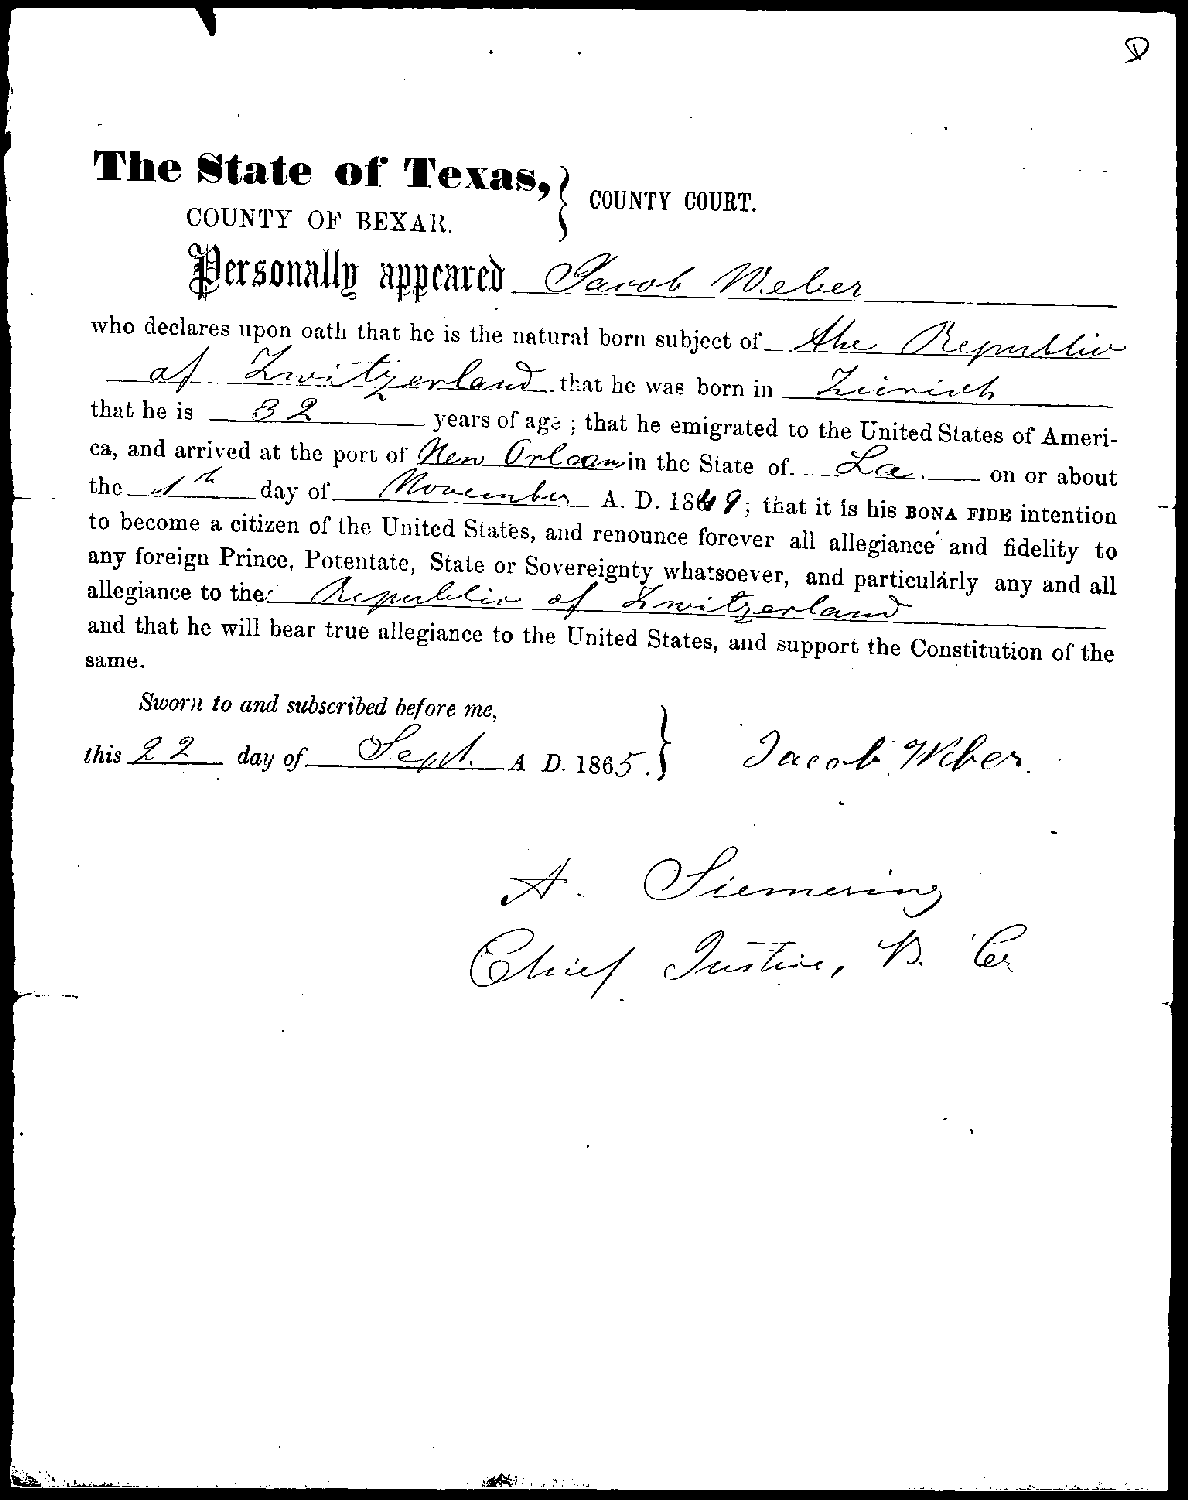 D
The State of Texas, } COUNTY COURT.
COUNTY OF BEXAR.
Personally appeared Jacob Weber
who declares upon oath that he is the natural born subject of the Republic
of Zwitzerland that he was born in Zürich
that he is 32 years of age ; that he emigrated to the United States of Ameri-
ca, and arrived at the port of New Orlean in the State of La. on or about
the 1th day of November A. D. 1849; that it is his BONA FIDE intention
to become a citizen of the United States, and renounce forever all allegiance and fidelity to
any foreign Prince, Potentate, State or Sovereignty whatsoever, and particularly any and all
allegiance to the Republic of Zwitzerland
and that he will bear true allegiance to the United States, and support the Constitution of the
same.
Sworn to and subscribed before me,
this 22 day of Sept. A D. 1865. } Jacob Weber.
A. Siemering
Chief Justice, B. Co